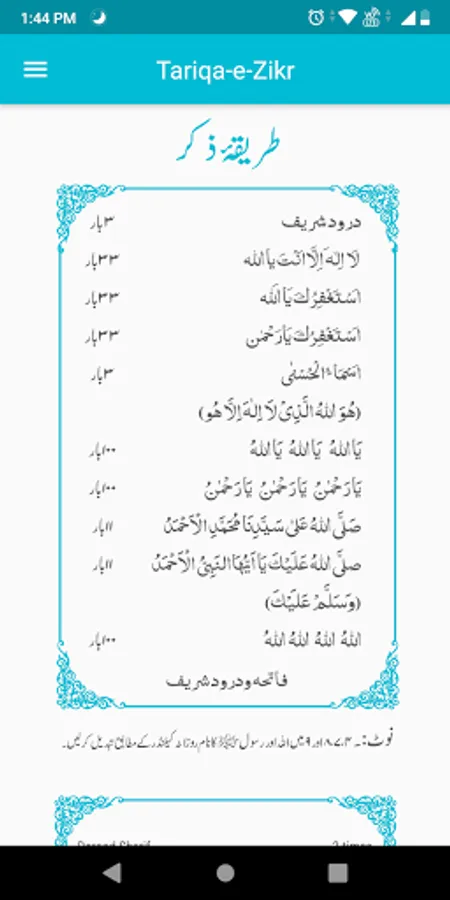 1:44 PM
Tariqa-e-Zikr
طریقۂ ذکر
درود شریف ۳ بار
لَا اِلٰهَ اِلَّا اَنْتَ یَا اَللّٰه ۳۳ بار
اَسْتَغْفِرُكَ یَا اَللّٰه ۳۳ بار
اَسْتَغْفِرُكَ یَا رَحْمٰن ۳۳ بار
اَسْمَاءُ الْحُسْنٰی ۳ بار
(هُوَ اللّٰهُ الَّذِیْ لَا اِلٰهَ اِلَّا هُو)
یَا اَللّٰهُ یَا اَللّٰهُ یَا اَللّٰهُ ۱۰۰ بار
یَا رَحْمٰنُ یَا رَحْمٰنُ یَا رَحْمٰنُ ۱۰۰ بار
صَلَّی اللّٰهُ عَلٰی سَیِّدِنَا مُحَمَّدِ الْاَحْمَدُ ۱۱ بار
صلَّی اللّٰهُ عَلَیْكَ یَا اَیُّهَا النَّبِیُّ الْاَحْمَدُ ۱۱ بار
(وَسَلَّمْ عَلَیْكَ)
اَللّٰهُ اَللّٰهُ اَللّٰهُ اَللّٰهُ ۱۰۰ بار
فاتحہ و درود شریف
نوٹ:۔ ۳، ۷، ۸ اور ۹ میں اللہ اور رسول ﷺ کا نام روزانہ کیلنڈر کے مطابق تبدیل کر لیں۔